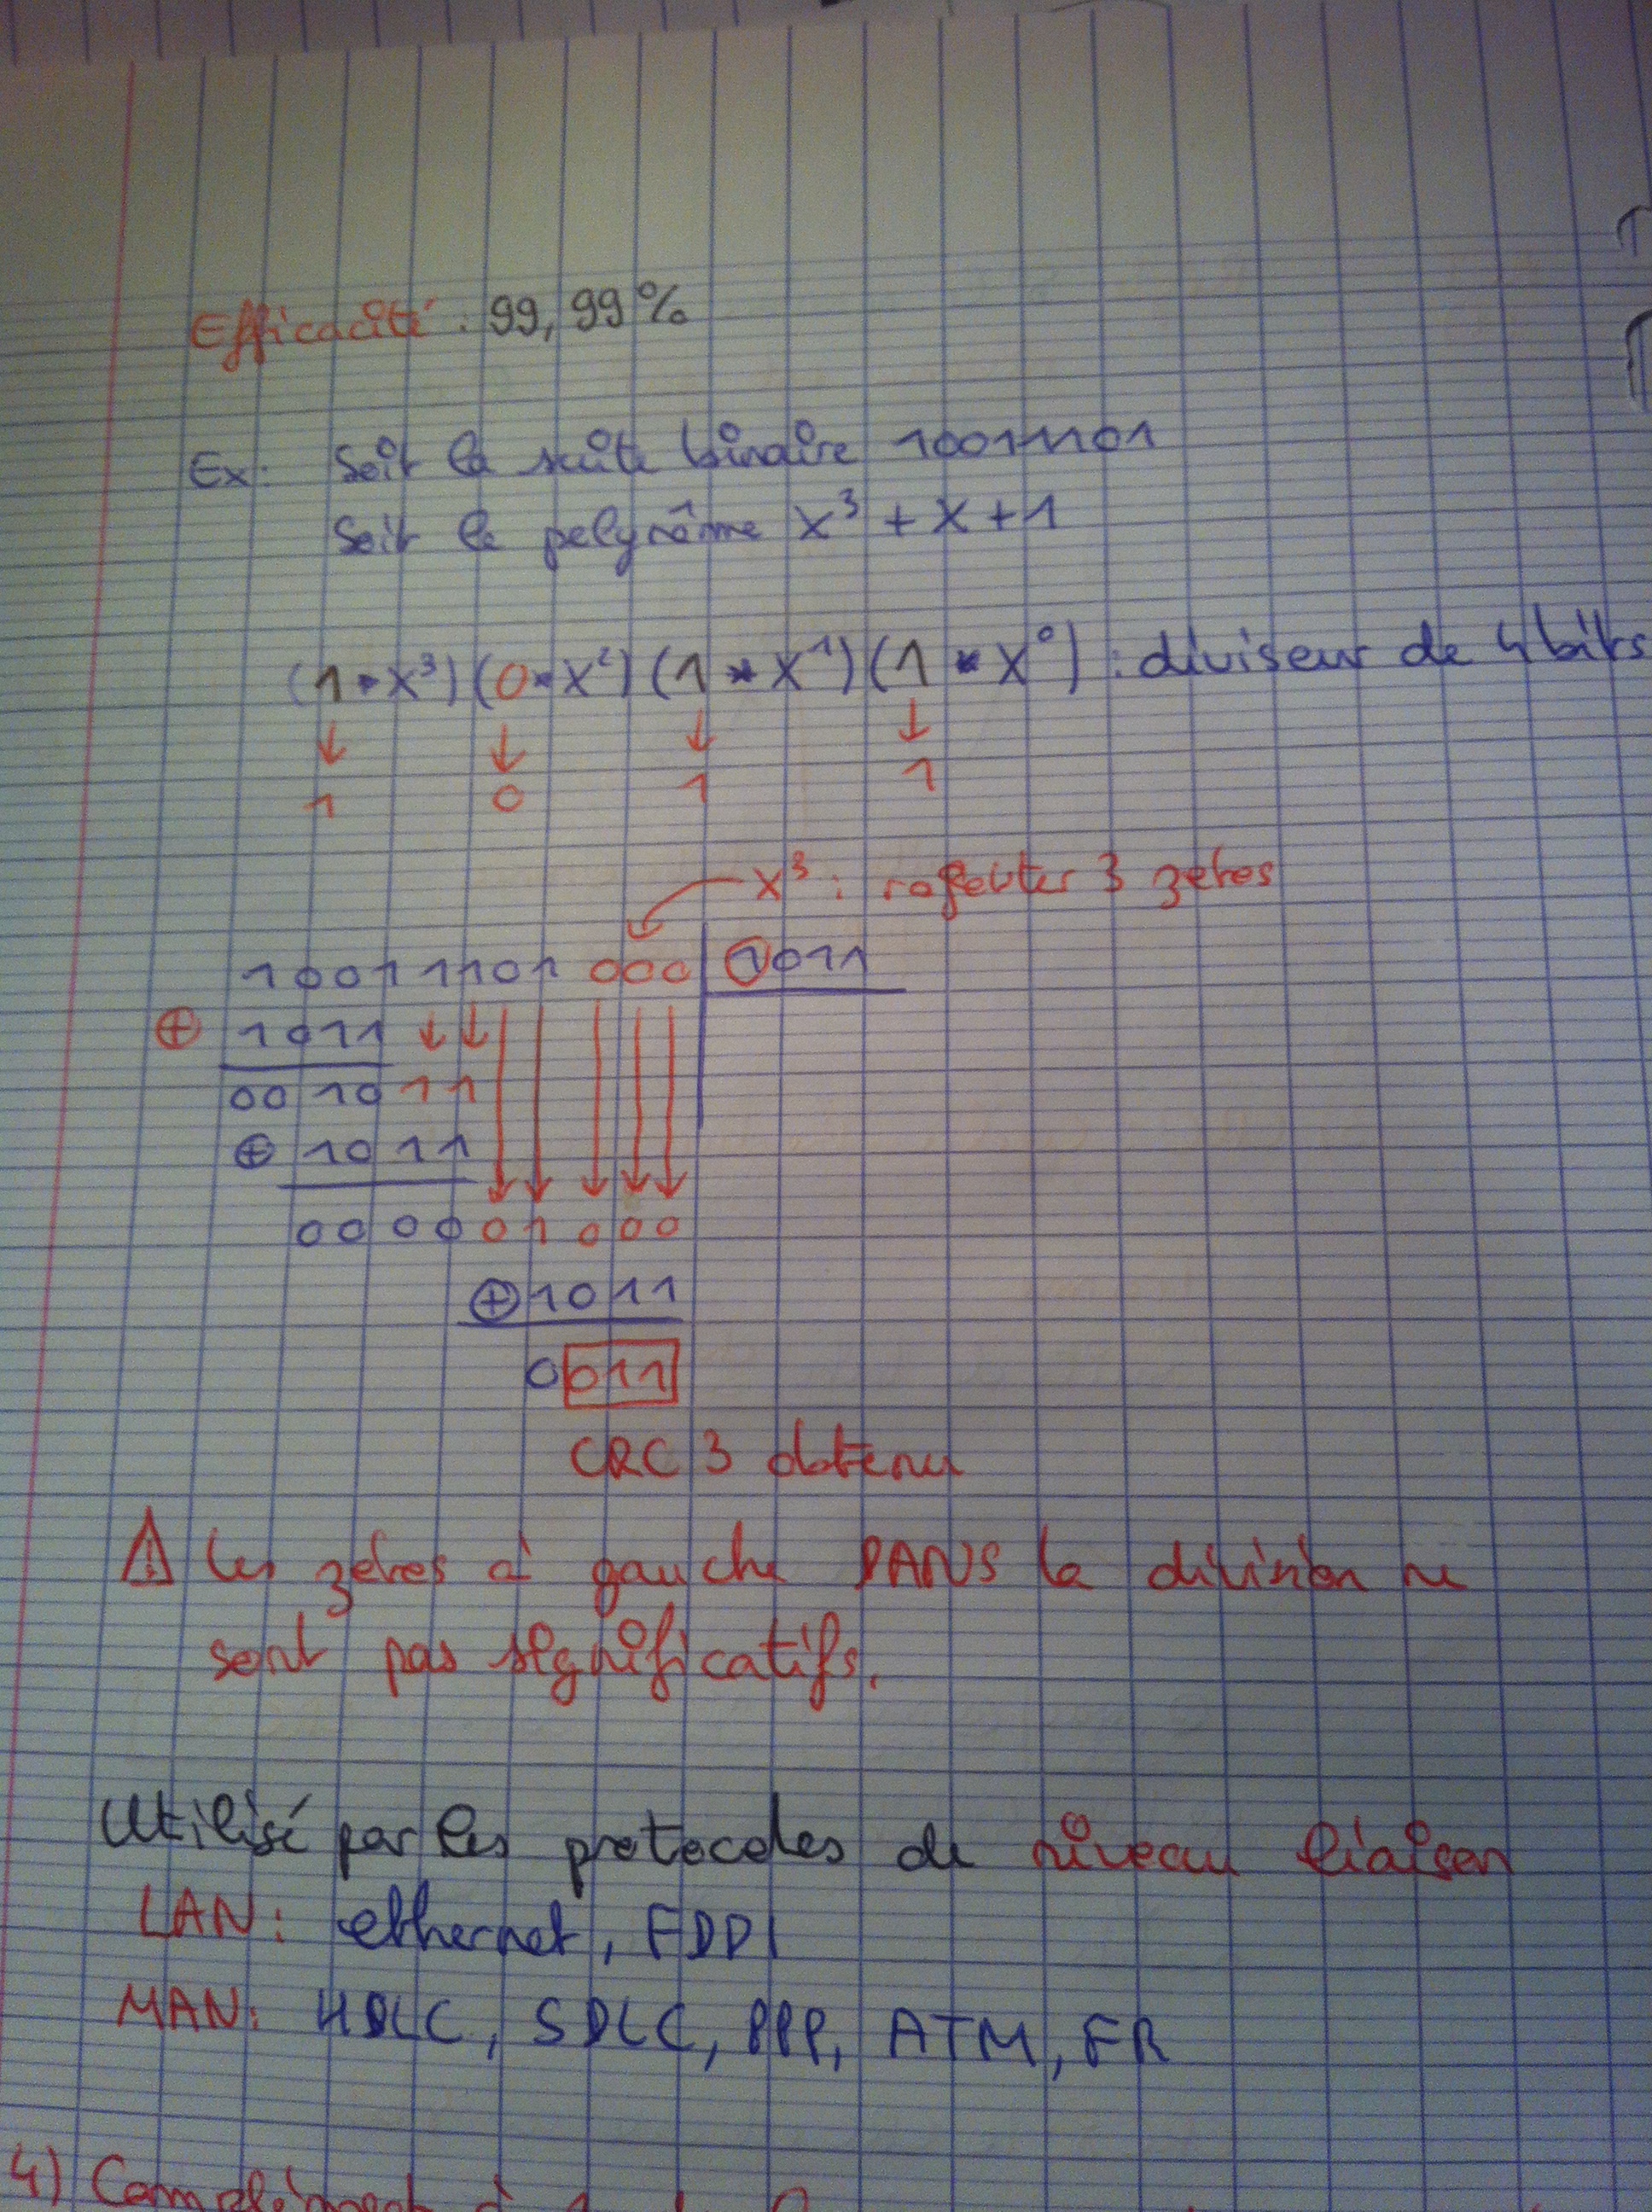 Efficacité : 99,99%
Ex: Soit la suite binaire 10011101
Soit le polynôme X³ + X + 1
(1*X³) (0*X²) (1*X¹) (1*X⁰) : diviseur de 4 bits
↓ ↓ ↓ ↓
1 0 1 1
X³ : rajouter 3 zéros
10011101 000 | 1011
⊕ 1011 ↓ ↓
00 10 11
⊕ 1011
0000 01 000
⊕ 1011
0 011
CRC 3 obtenu
⚠ les zéros à gauche DANS la division ne
sont pas significatifs.
Utilisé par les protocoles de niveau liaison
LAN: ethernet, FDDI
MAN: HDLC, SDLC, PPP, ATM, FR
4)